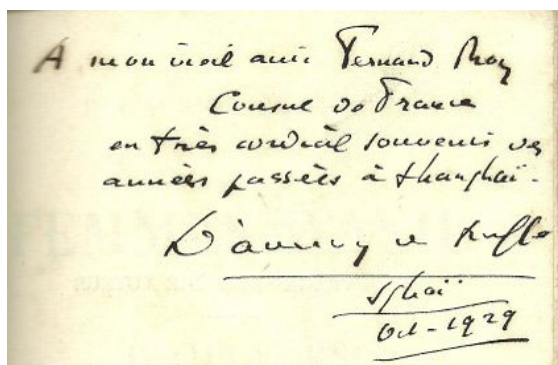 A mon vieil ami Fernand Roy
Consul de France
en très cordial souvenir des
années passées à Shanghaï.
D'auxion de Ruffé
Sghaï
Oct - 1929